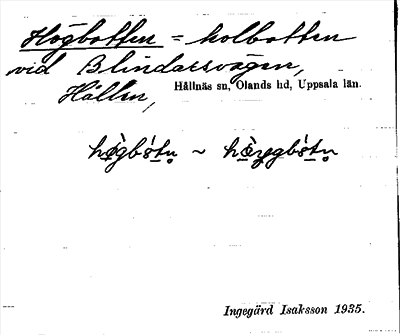 Högbotten = kolbotten
vid Blindarsvägen,
Hållen,
Hållnäs sn, Olands hd, Uppsala län.
~
Ingegärd Isaksson 1935.